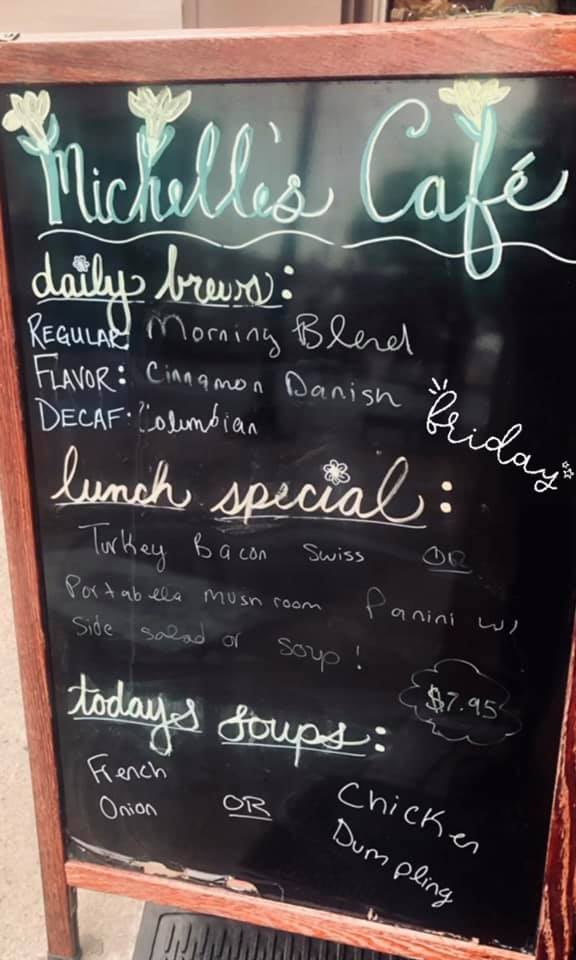 Michelle's Café
daily brews:
REGULAR: Morning Blend
FLAVOR: Cinnamon Danish
DECAF: Columbian
friday
lunch special:
Turkey Bacon Swiss OR
Portabella mushroom Panini w/
side salad or soup!
$7.95
todays soups:
French
Onion
OR
Chicken
Dumpling